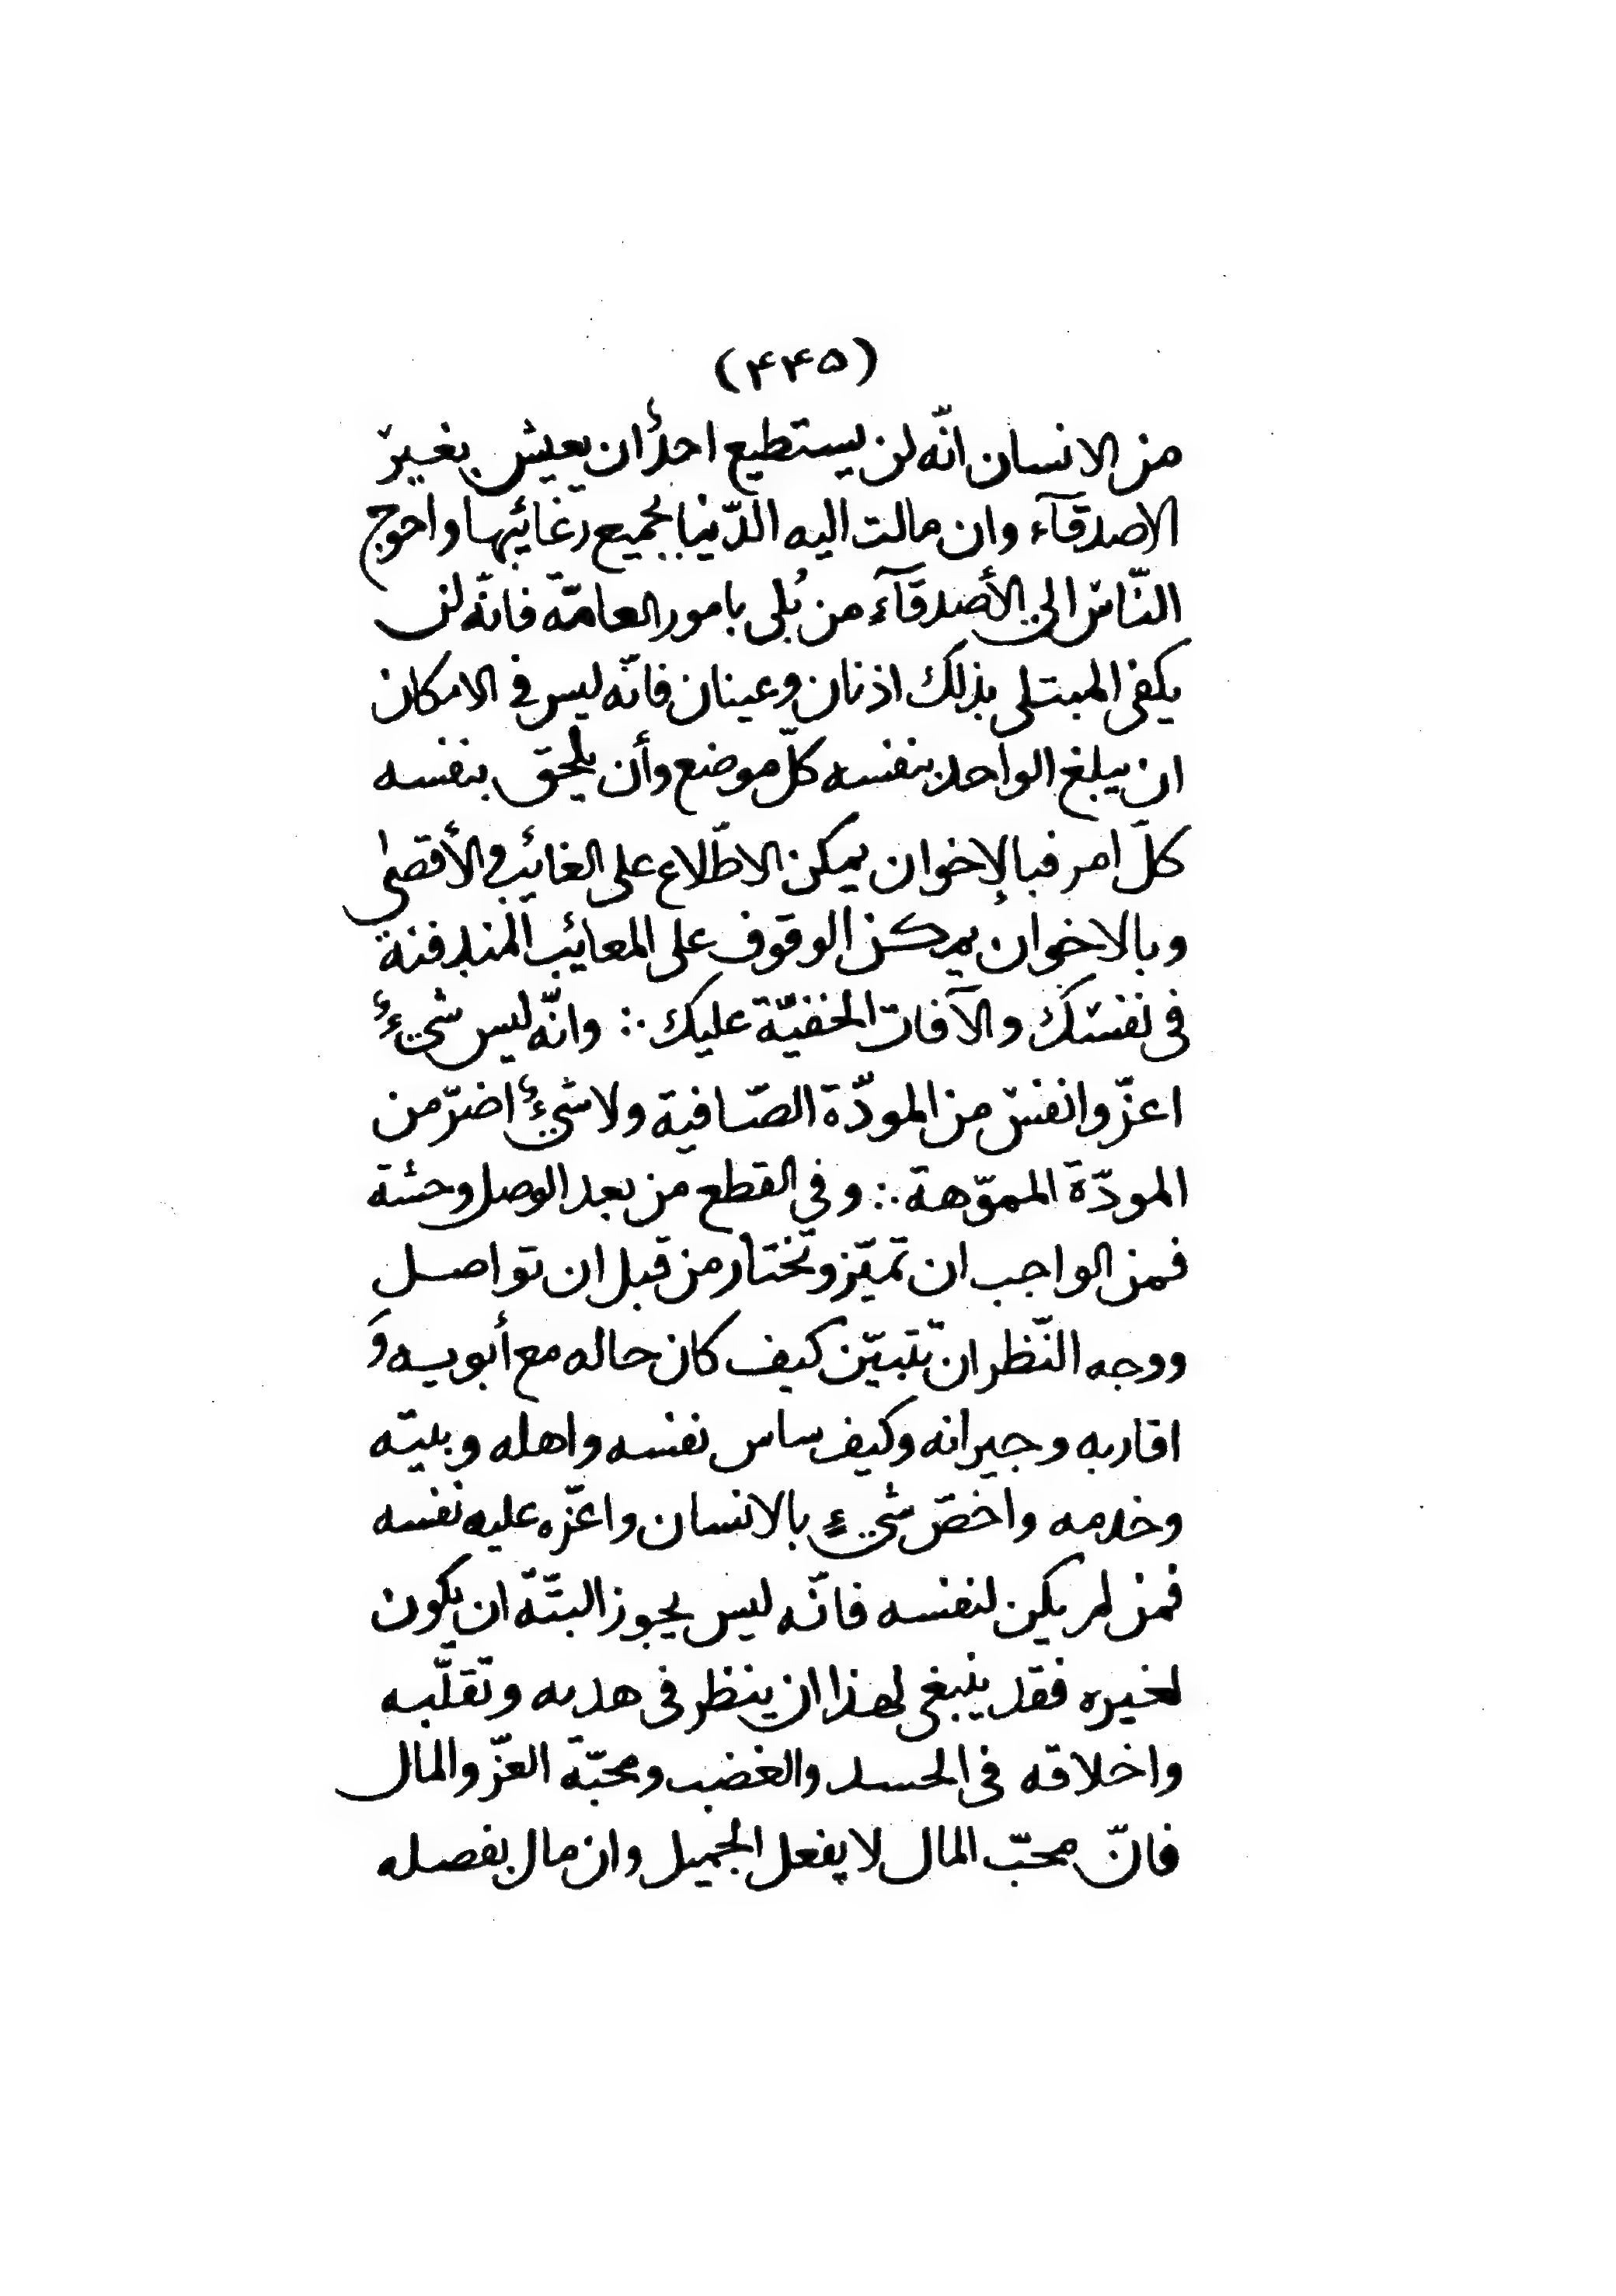 (۴۴۵)
من الانسان انّه لن يستطيع احدٌ أن يعيش بغير
الاصدقآء وان مالت اليه الدّنيا بجميع رغائبها واحوج
النّاس الى الأصدقآء من بُلى بامور العامّة فانّه لن
يكفى المبتلى بذلك اذنان وعينان فانّه ليس فى الامكان
ان يبلغ الواحد بنفسه كلّ موضع وأن يلحق بنفسه
كلّ امر فبالإخوان يمكن الاطّلاع على الغائب والأقصى
وبالاخوان يمكن الوقوف على المعائب المندفنة
فى نفسك والآفات الخفيّة عليك ∴ وانّه ليس شئٌ
اعزّ وانفس من المودّة الصّافية ولا شئٌ اضرّ من
المودّة المموّهة ∴ وفى القطع من بعد الوصل وحشة
فمن الواجب ان تميّز وتختار من قبل ان تواصل
ووجه النّظر ان تتبيّن كيف كان حاله مع أبويه وَ
اقاربه وجيرانه وكيف ساس نفسه واهله وبيته
وخدمه واخصّ شئٍ بالانسان واعزّه عليه نفسه
فمن لم يكن لنفسه فانّه ليس يجوز البتّة ان يكون
لغيره فقد ينبغى لهذا ان ينظر فى هديه وتقلّبه
واخلاقه فى الحسد والغضب ومحبّة العزّ والمال
فانّ محبّ المال لا يفعل الجميل وان مال بفصله